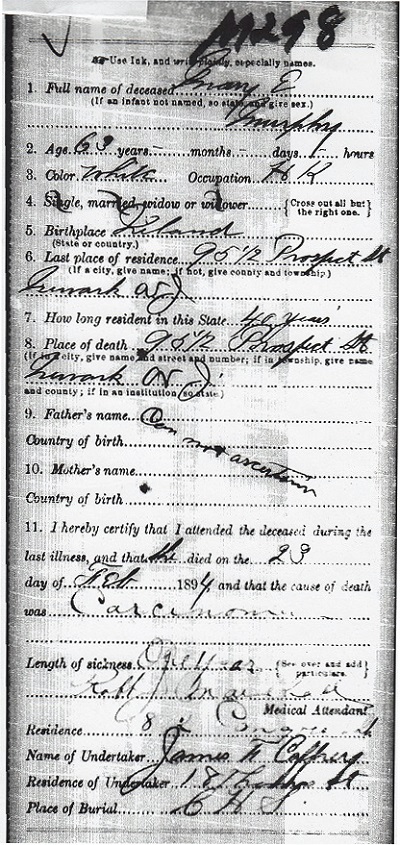 M298
Use Ink, and write plainly, especially names.
1. Full name of deceased Mary E
(If an infant not named, so state, and give sex.)
Murphy
2. Age 63 years - months - days - hours
3. Color White Occupation H K
4. Single, married, widow or widower {Cross out all but the right one.}
5. Birthplace Ireland
(State or country.)
6. Last place of residence 95 1/2 Prospect St
(If a city, give name; if not, give county and township)
Newark N J
7. How long resident in this State 40 years
8. Place of death 95 1/2 Prospect St
(If in city, give name and street and number; if in township, give name
Newark N J
and county; if in an institution, so state)
9. Father's name Can not ascertain
Country of birth
10. Mother's name
Country of birth
11. I hereby certify that I attended the deceased during the
last illness, and that she died on the 23
day of Feb 1894 and that the cause of death
was Carcinoma
Length of sickness One year {See over and add particulars.}
Robt J
Medical Attendant
Residence 8 Congress St
Name of Undertaker James F Caffrey
Residence of Undertaker St
Place of Burial C H S